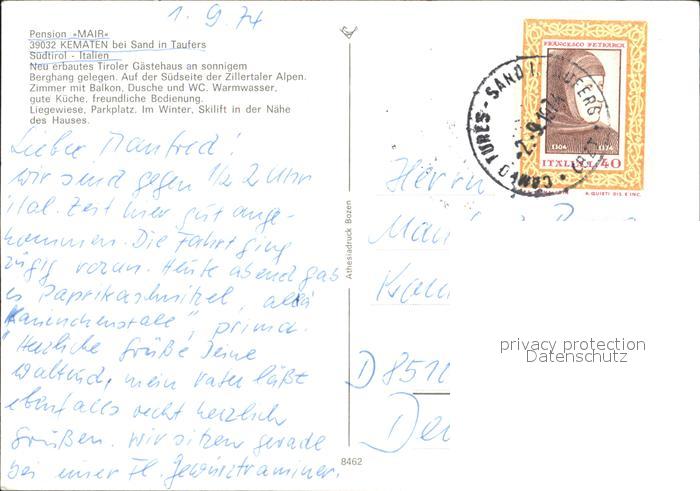 1.9.74
Pension »MAIR«
39032 KEMATEN bei Sand in Taufers
Südtirol - Italien
Neu erbautes Tiroler Gästehaus an sonnigem
Berghang gelegen. Auf der Südseite der Zillertaler Alpen.
Zimmer mit Balkon, Dusche und WC. Warmwasser,
gute Küche, freundliche Bedienung.
Liegewiese, Parkplatz. Im Winter, Skilift in der Nähe
des Hauses.
Lieber Manfred!
Wir sind gegen 1/2 2 Uhr
ital. Zeit hier gut ange-
kommen. Die Fahrt ging
zügig voran. Heute abend gab
es Paprikaschnitzel, prima.
Herzliche Grüße Deine
Waltrud, mein Vater läßt
ebenfalls recht herzlich
Grüßen. Wir sitzen gerade
bei einer Fl. Gewürztraminer.
Athesiadruck Bozen
8462
FRANCESCO PETRARCA
1304 1374
ITALIA L. 40
A. QUIETI DIS. E INC.
CAMPO TURES - SAND I. TAUFERS
2.-9.1974
(BZ)
Herrn
D 851
privacy protection
Datenschutz